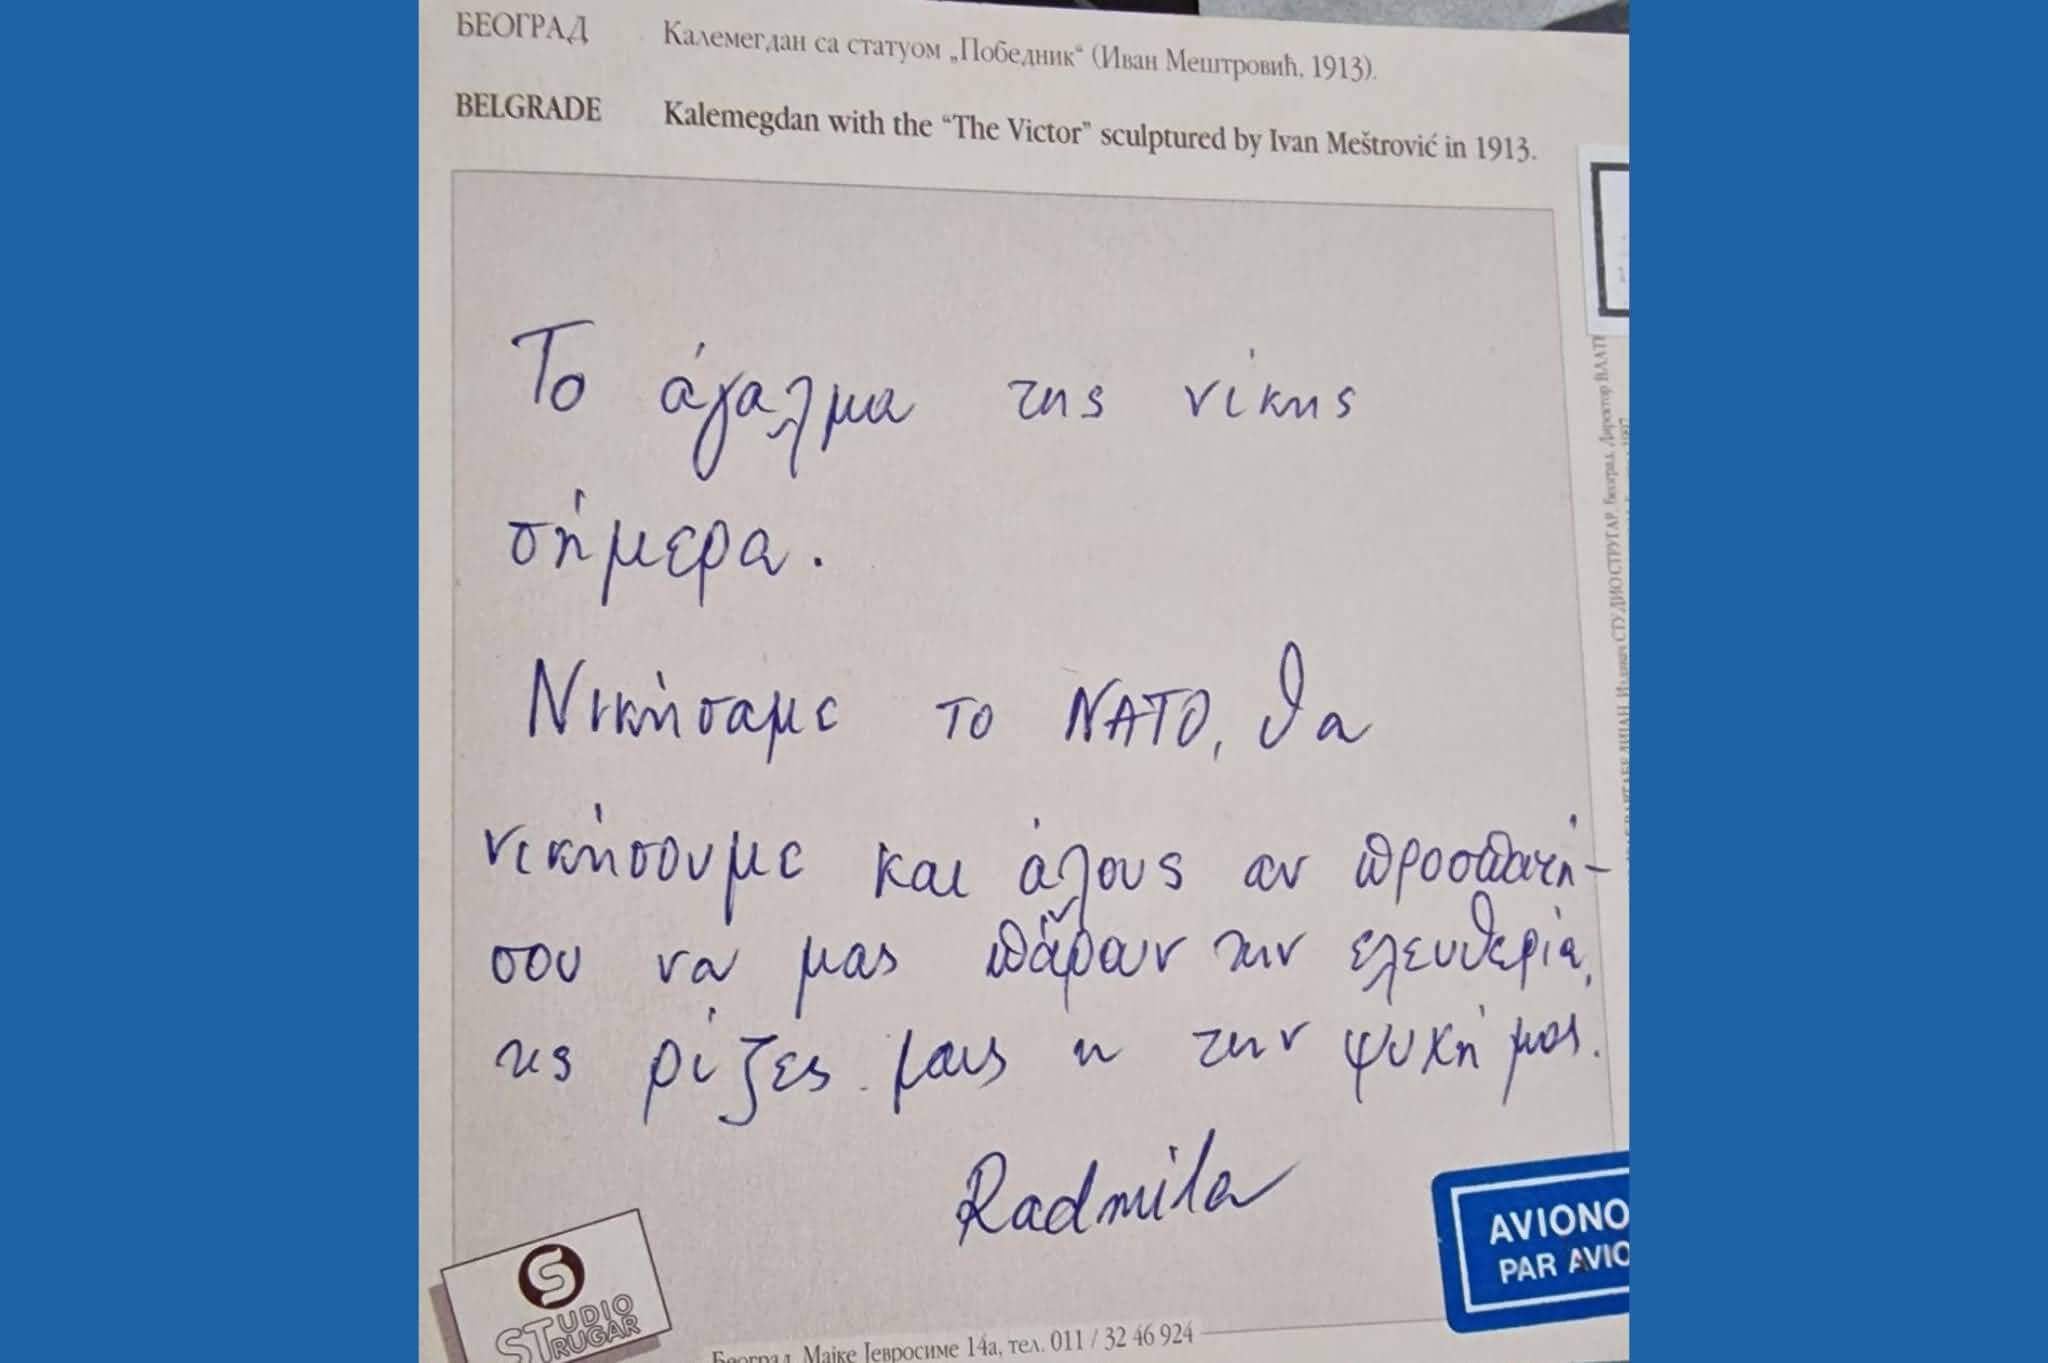 БЕОГРАД Калемегдан са статуом „Победник“ (Иван Мештровић, 1913).
BELGRADE Kalemegdan with the “The Victor” sculptured by Ivan Meštrović in 1913.
Το άγαλμα της νίκης
σήμερα.
Νικήσαμε το ΝΑΤΟ, θα
νικήσουμε και άλους αν προσπατή-
σου να μας πάρουν την ελευθερία,
τις ρίζες μας η την ψυχή μας.
Radmila
STUDIO
STRUGAR
AVIONO
PAR AVIO
Београд, Мајке Јевросиме 14а, тел. 011 / 32 46 924